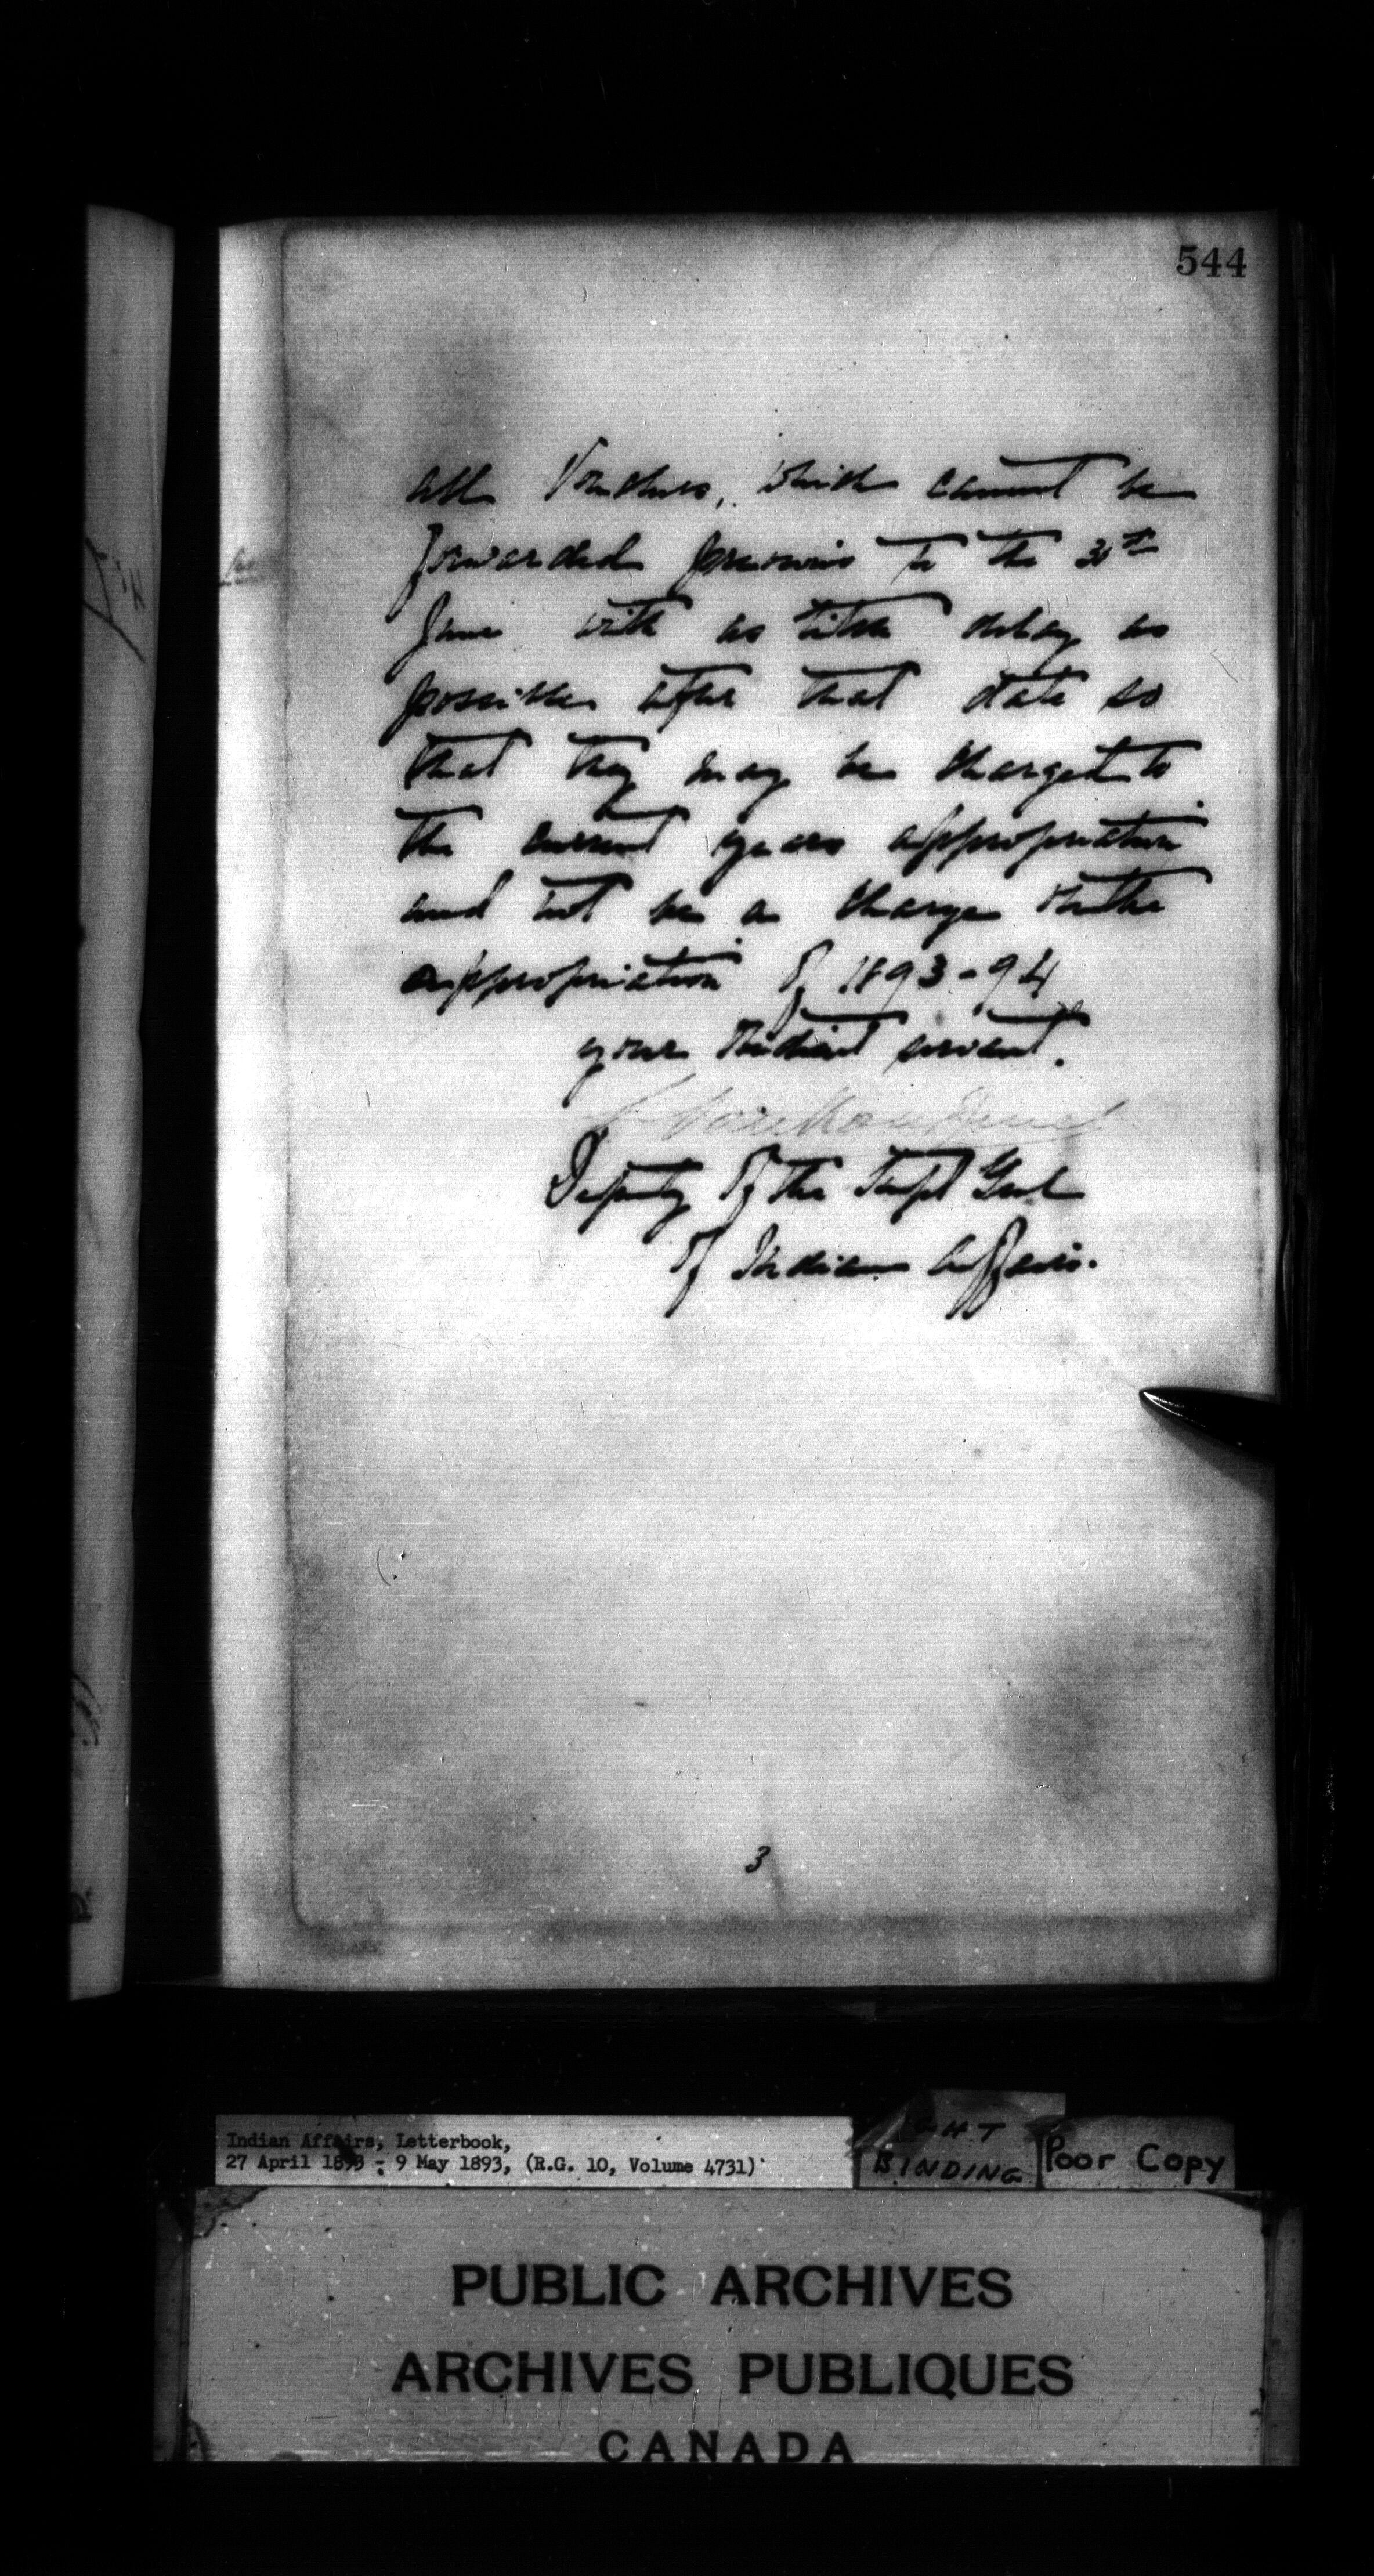 544
all Vouchers, which cannot be
forwarded previous to the 30th
June with as little delay as
possible after that date so
that they may be charged to
the current years appropriation
and not be a charge on the
appropriation of 1893-94
your obedient servant.
Deputy of the Supt Genl
of Indian Affairs.
3
Indian Affairs, Letterbook,
27 April 1893 - 9 May 1893, (R.G. 10, Volume 4731)
BINDING
Poor Copy
PUBLIC ARCHIVES
ARCHIVES PUBLIQUES
CANADA